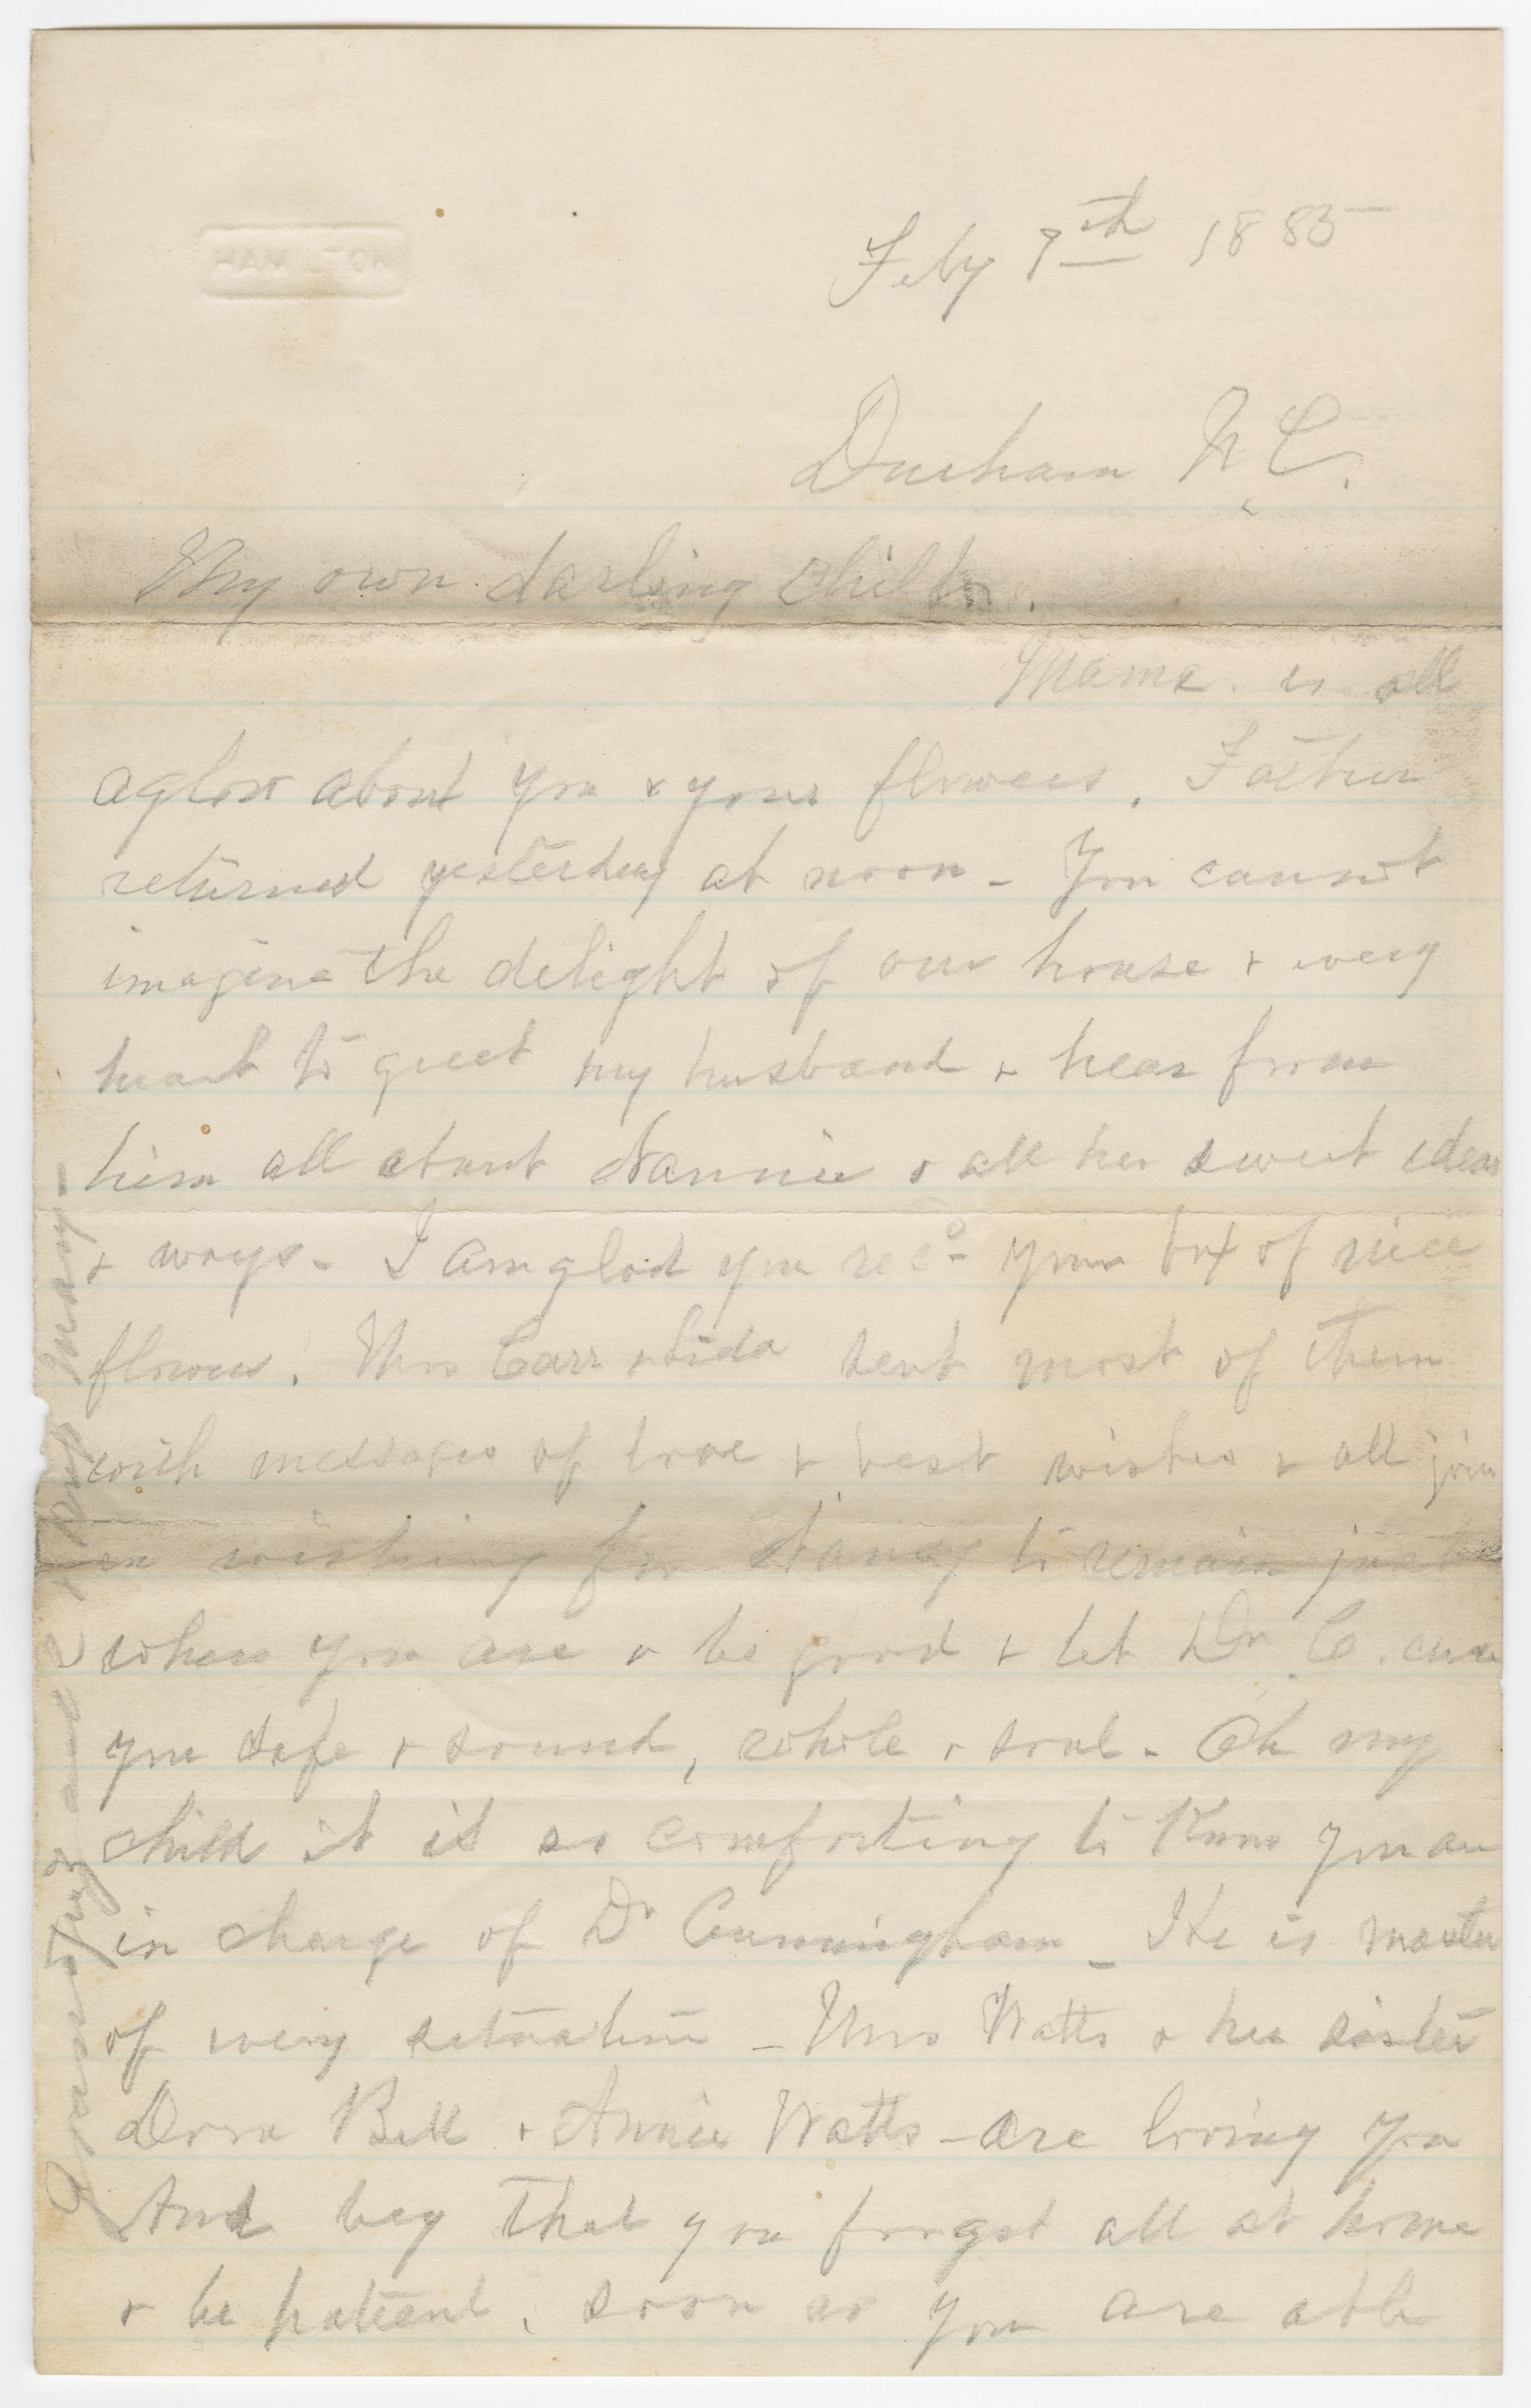 HAMILTON
Feby 7th 1885
Durham N.C.
My own darling child.
Mama is all
aglow about you & your flowers. Father
returned yesterday at noon - You cannot
imagine the delight of our house & every
heart to greet my husband & hear from
him all about Nannie & all her sweet ideas
& ways - I am glad you recd your box of nice
flowers. Mrs Carr & Lida sent most of them
with messages of love & best wishes & all join
in wishing for Nancy to remain just
where you are & be good & let Dr. C. cure
you safe & sound, whole & soul - Oh my
child it is so comforting to know you are
in charge of Dr Cunningham - He is master
of every situation - Mrs Watts & her sister
Dora Bell & Annie Watts - are loving you
And beg that you forget all at home
& be patient, soon as you are able